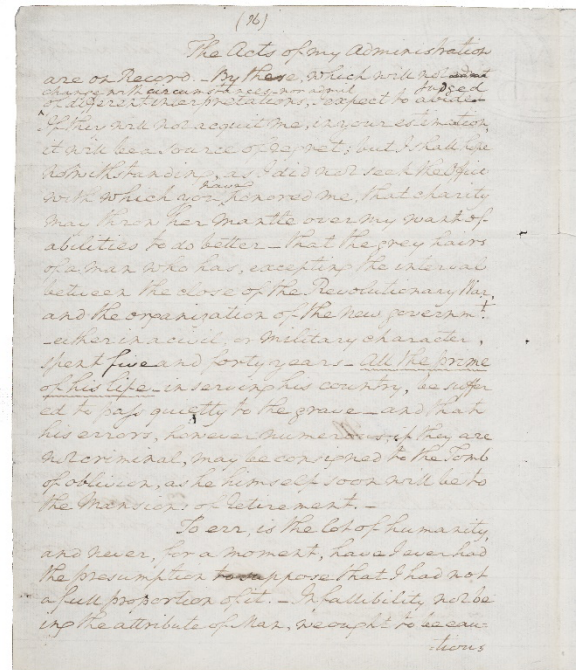 (26)
The Acts of my Administration
are on Record. – By these, which will not
change with circumstances, nor admit judged
of different interpretations, I expect to abide
If they will not acquit me, in your estimation,
it will be a source of regret; but I shall hope
notwithstanding, as I did not seek the Office
with which you have honored me, that charity
may throw her mantle over my want of
abilities to do better – that the grey hairs
of a man who has, excepting the interval
between the close of the Revolutionary War,
and the organization of the new governmt.
– either in a civil, or military character,
spent five and forty years – All the prime
of his life – in serving his country, be suffer
ed to pass quietly to the grave – and that
his errors, however numerous, if they are
not criminal, may be consigned to the Tomb
of oblivion, as he himself soon will be to
the Mansions of Retirement. –
To err, is the lot of humanity,
and never, for a moment, have I ever had
the presumption to suppose that I had not
a full proportion of it. – Infallibility not be
ing the attribute of Man, we ought to be cau
tious